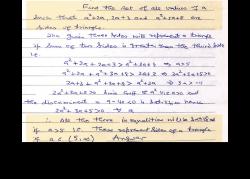 Find the set of all values of a
such that a²+2a, 2a+3 and a²+3a+8 are
sides of triangle.
The given three sides will represent a triangle
if sum of two sides is greater than the third side
i.e.
a²+2a+2a+3 > a²+3a+8 ⇒ a>5
a²+2a+a²+3a+8 > 2a+3 ⇒ 2a²+3a+5>0
2a+3+a²+3a+8 > a²+2a ⇒ 3a > -11
2a²+3a+5>0
the discriminant = 9-40 <0 is
2a²+3a+5>0
∴ All the three in equalities will be satisfied
if a>5 i.e. these represent sides of a triangle
if a ∈ (5,∞) Answer